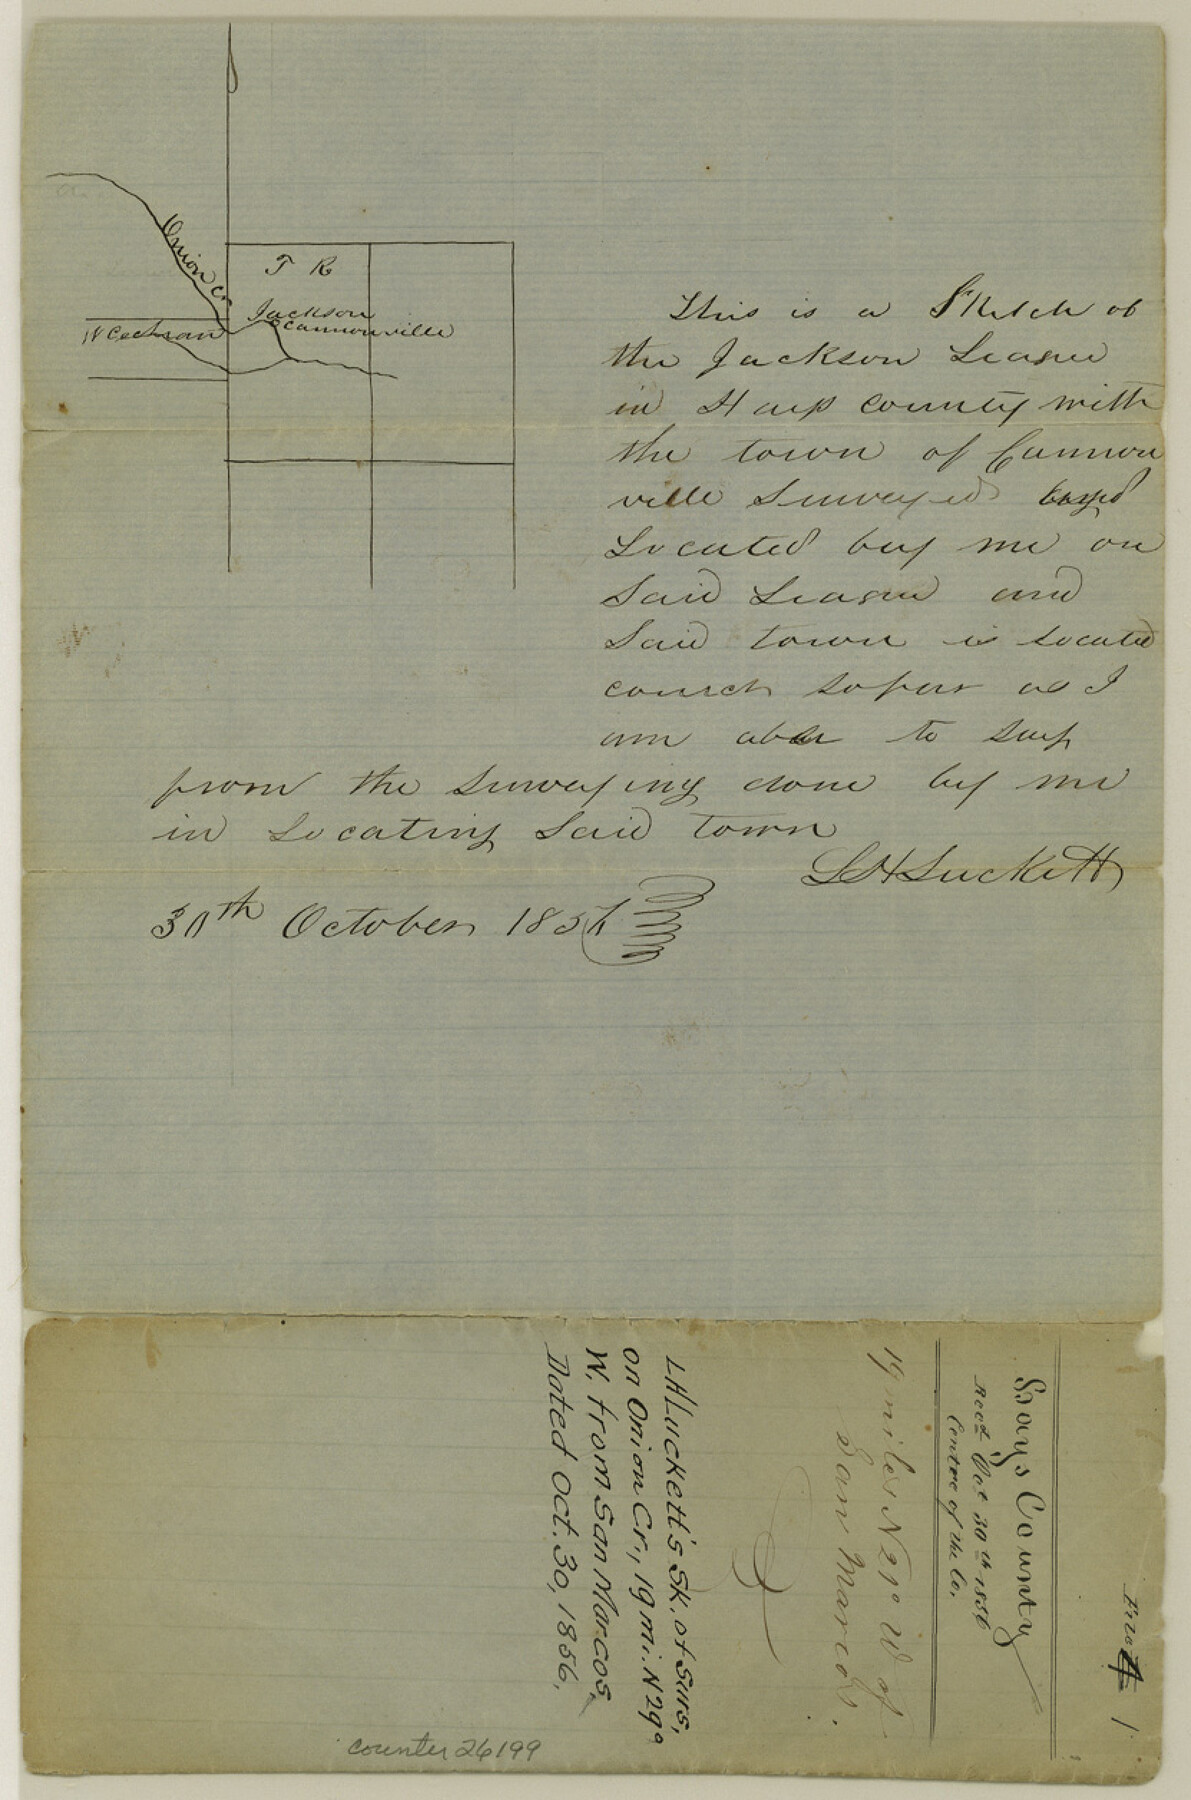 Onion Cr
T R
Jackson
Cannonville
W Cochran
This is a Sketch of
the Jackson League
in Hays county with
the town of Cannon
ville Surveyed
Located by me on
Said League and
Said town is Located
correct so far as I
am able to say
from the Surveying done by me
in Locating Said town
LHLuckett
30th October 1856
1
Hays County
Recd Oct 30th 1856
Centre of the Co.
19 miles N 29° W of
San Marcos.
LHLuckett's Sk. of Surs,
on Onion Cr., 19 mi. N 29°
W. from San Marcos,
Dated Oct. 30, 1856.
counter 26199